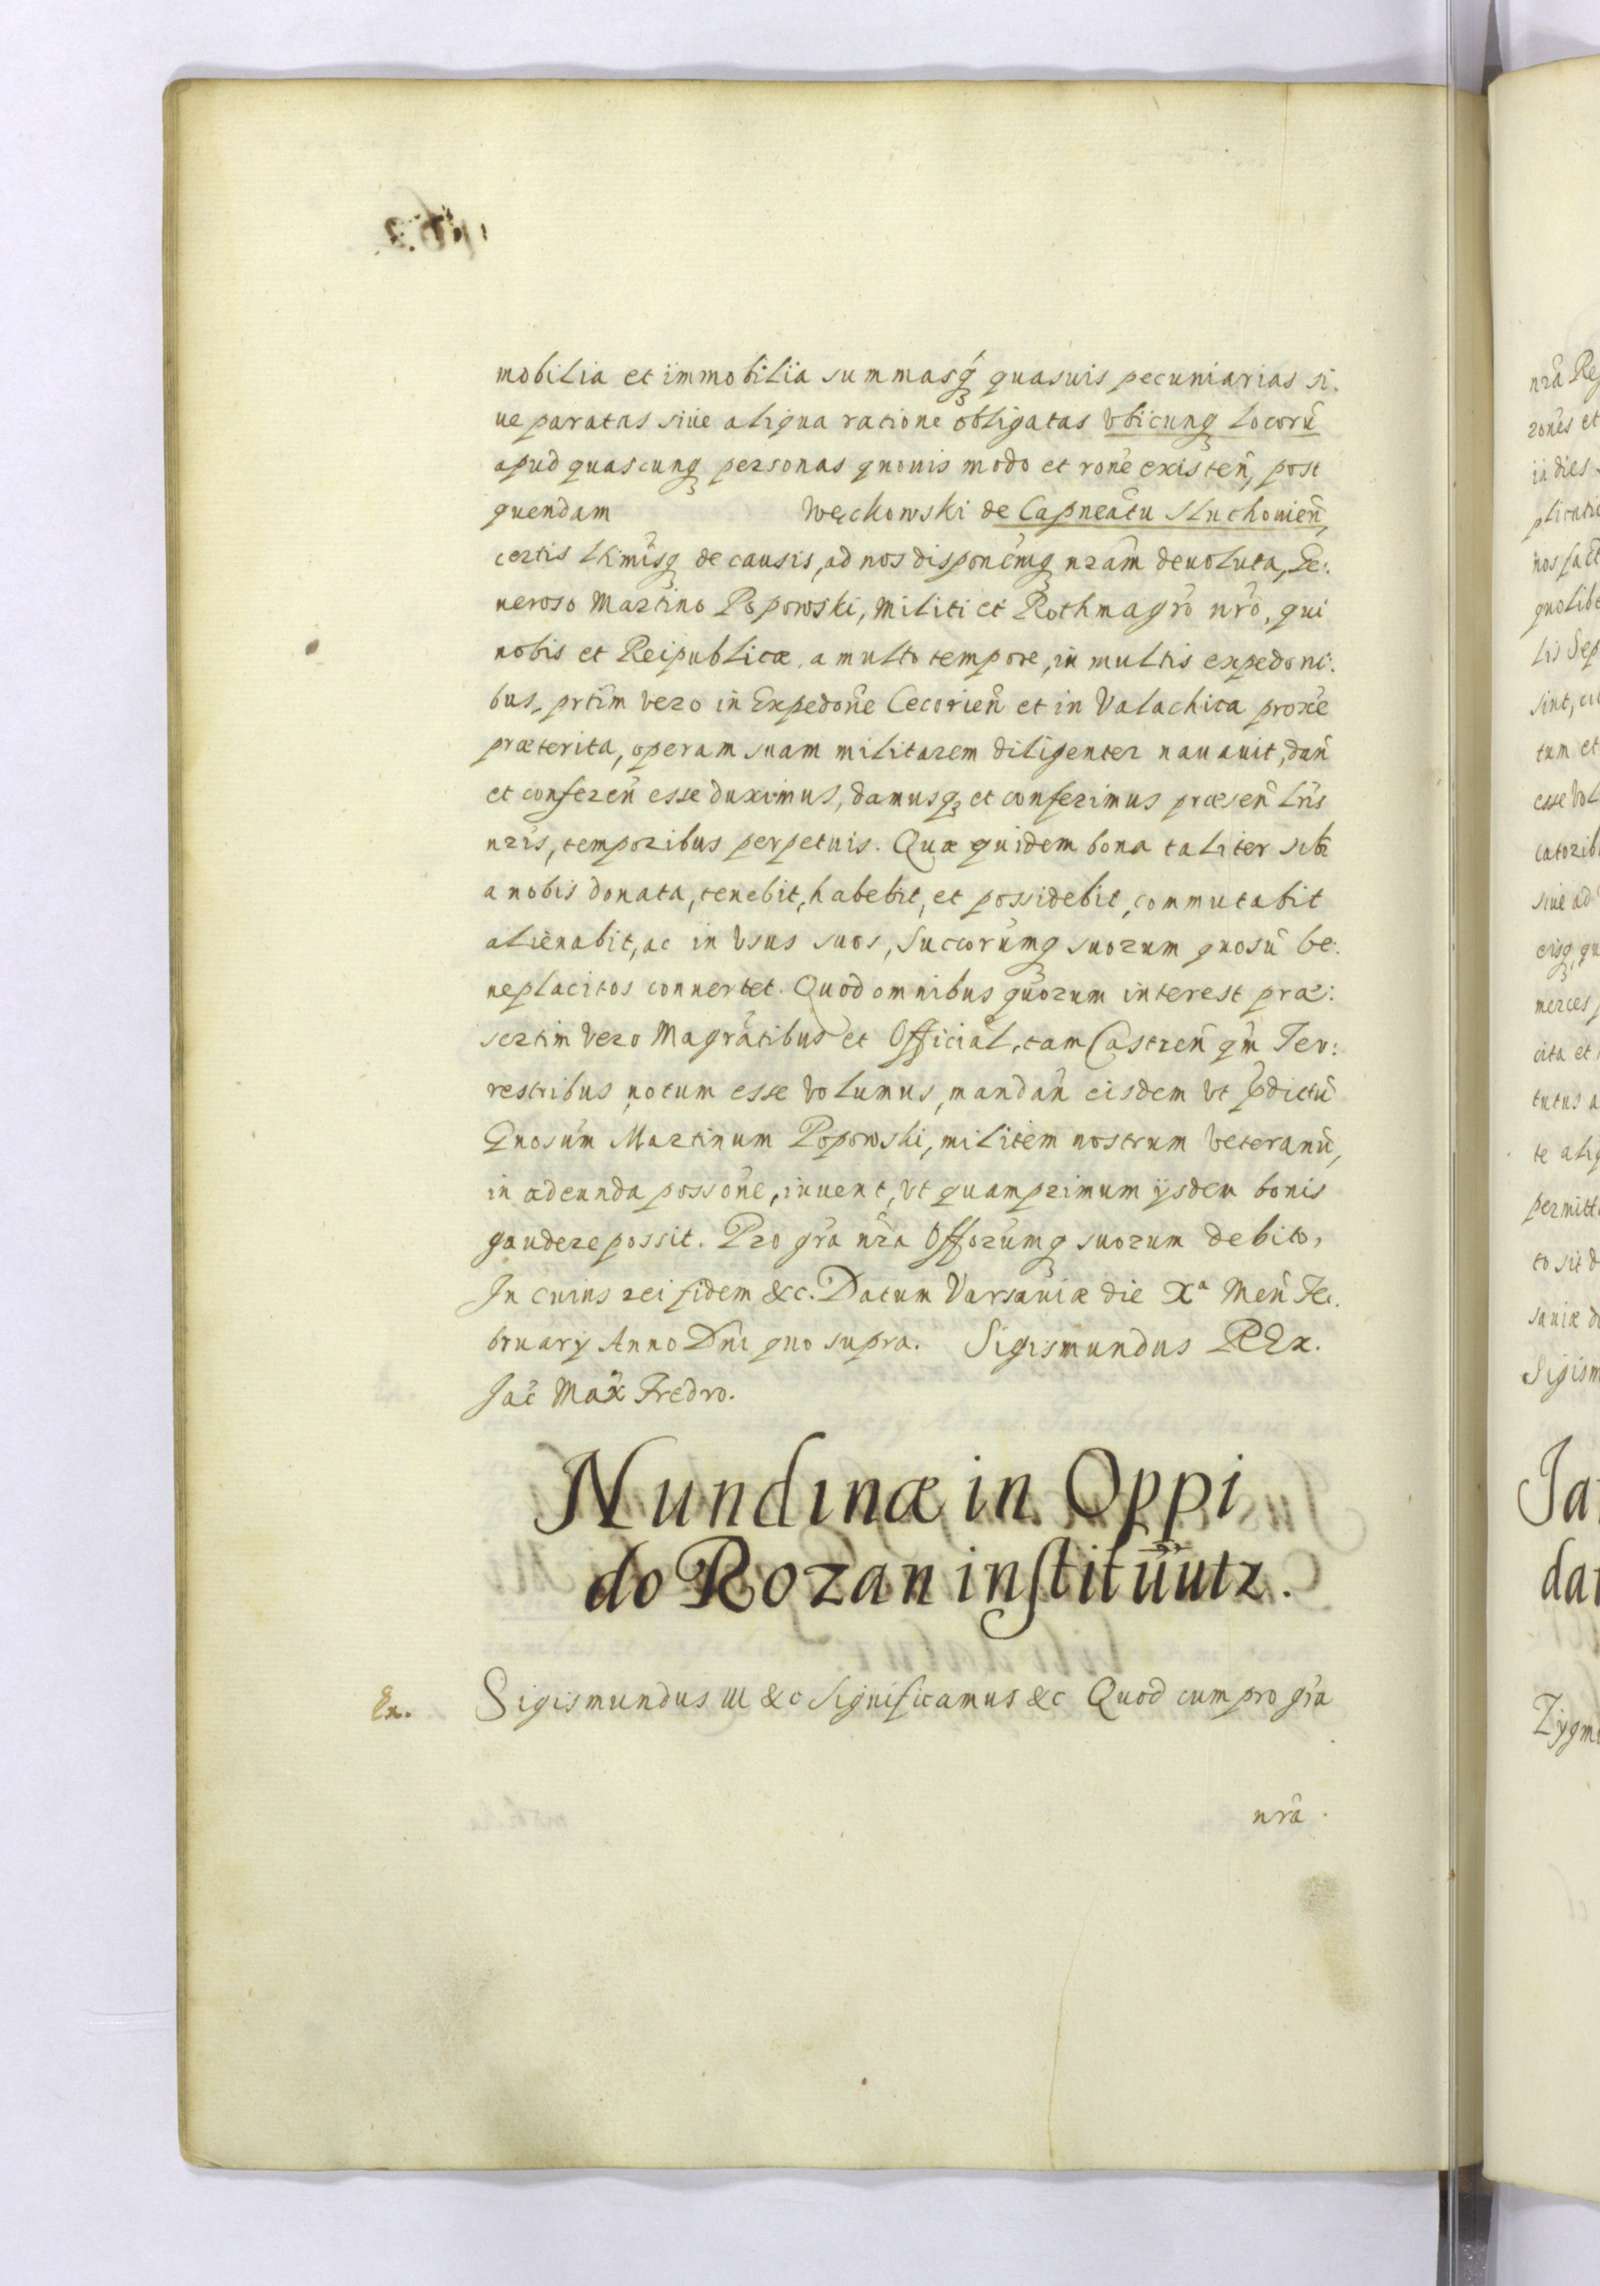 mobilia et immobilia summasq́ꝫ quasuis pecuniarias si.
ue paratas siue aliqua ratione obligatas vbicunqꝫ locorũ
apud quascunqꝫ personas quouis modo et rone͂ existen͂, post
quendam Węckowski de Capnea͂tu Sluchouien͂,
certis l͂timisqꝫ de causis, ad nos dispone͂mqꝫ nram͂ deuoluta, Ge:
neroso Martino Popowski, militi et Rothmagro͂ nro͂, qui
nobis et Reipublicæ, a multo tempore, in multis expedoni:
bus, prtim͂ vero in Expedone͂ Cecorien͂ et in Valachica proxe͂
præterita, operam suam militarem diligenter nauauit, dan͂
et conferen͂ esse duximus, damusqꝫ et conferimus præsen͂ lris͂
nris͂, temporibus perpetuis. Quæ quidem bona taliter sibi
a nobis donata, tenebit, habebit, et possidebit, commutabit
alienabit, ac in vsus suos, Succorum͂qꝫ suorum quosũ be:
neplacitos conuertet. Quod omnibus quorum interest præ:
sertim vero Magratibus͂ et Official, tam Castren͂ qm͂ Ter:
restribus notum esse volumus, mandan͂ eisdem vt p͂dictũ
Gnosum͂ Martinum Popowski, militem nostrum veteranũ,
in adeunda possone͂, iuuent, vt quamprimum ijsdem bonis
gaudere possit. Pro gra͂ nra͂ Offorum͂qꝫ suorum debito,
In cuius rei fidem &c. Datum Varsauiæ die Xª Men͂ Fe.
bruarij Anno Dni͂ quo supra. Sigismundus REx.
Jac͂ Max͂ Fredro.
Nundinæ in Oppi
do Rozan instituutr.
Ex. Sigismundus III &c Significamus &c Quod cum pro gra͂
nra͂